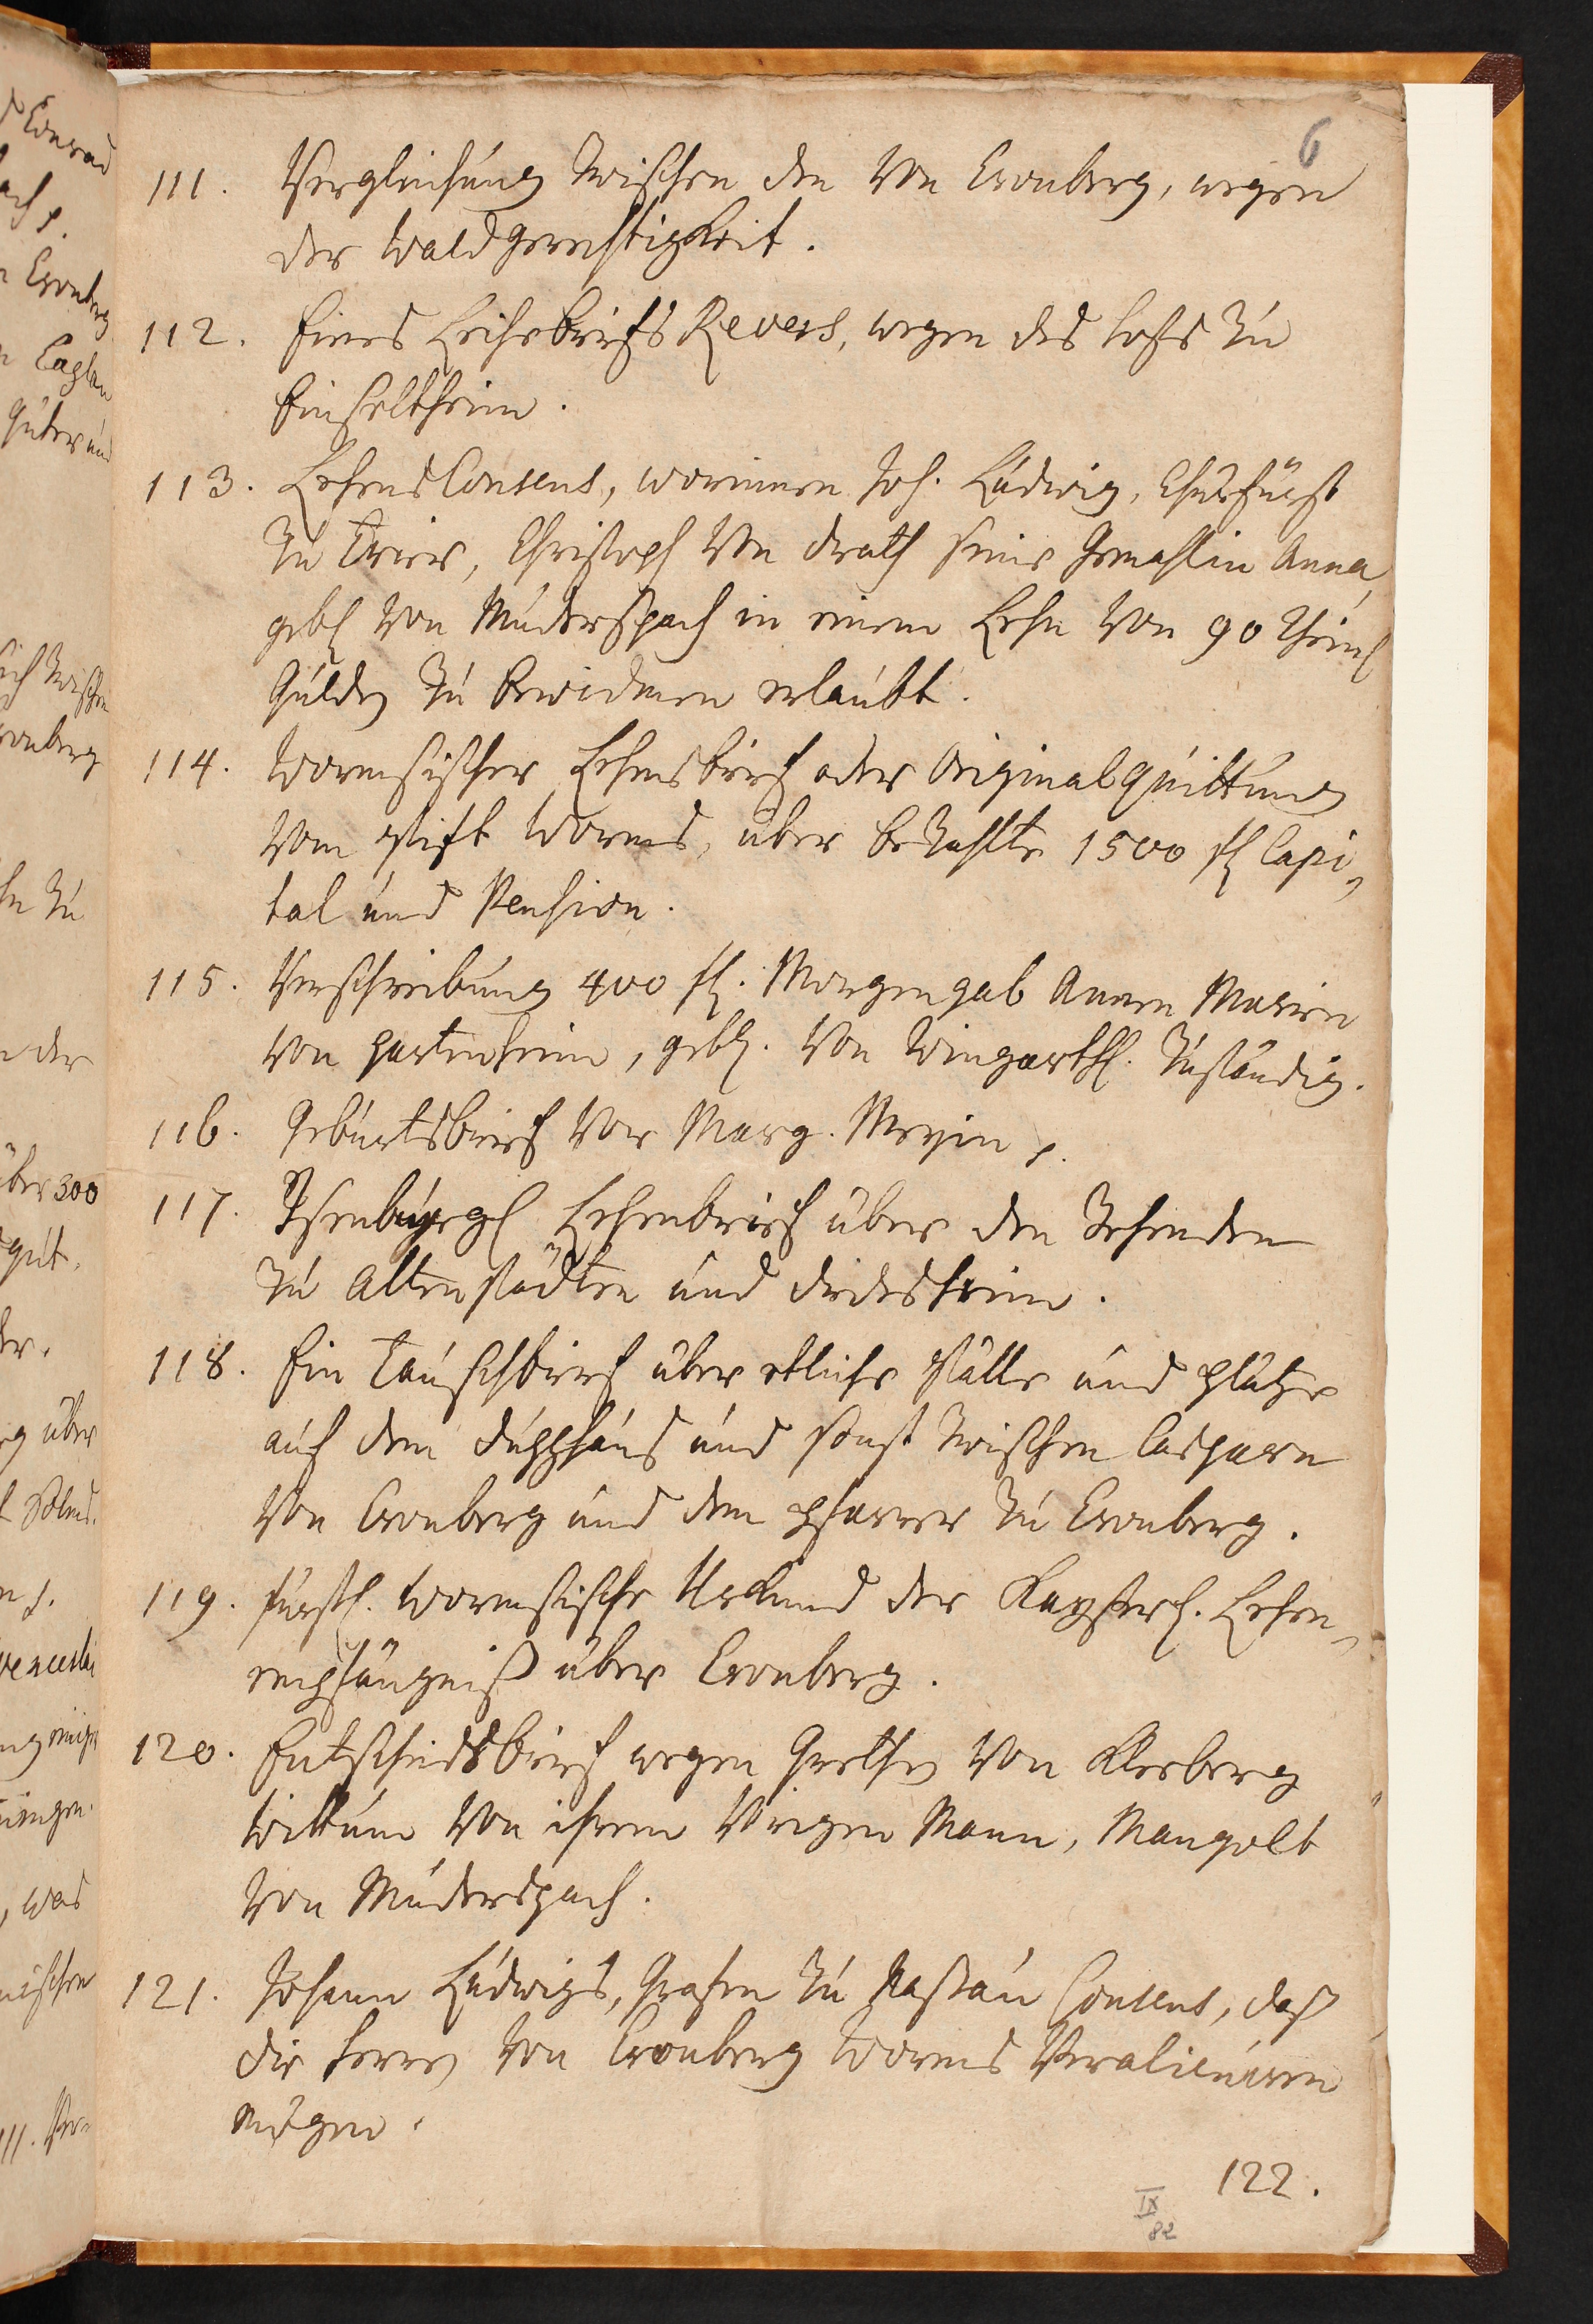 6
111. Vergleichung zwischen den von Cronberg, wegen
der Waldgerechtigkeit.
112. Eines Leihebriefs Revers, wegen des Hofs zu
Einseltheim.
113. Lehens Consens, worinnen Joh. Ludwig, Churfürst
zu Trier, Christoph von Drath seine Gemahlin Anna
geb. von Muderspach in einem Lehn von 90 Rhein.
Gulden zu bewidmen erlaubt.
114. Wormsischer Lehensbrief oder Original Quittung
vom Stift Worms, über bezahlte 1500 fl Capi,
tal und Pension.
115. Verschreibung 400 fl. Morgengab Annen Marien
von Hartenheim, geb. von Wingarth. zuständig.
116. Geburtsbrief vor Marg. Meyin p.
117. Isenburgl Lehenbrief über den Zehenden
zu Altenstädten und Diedesheim.
118. Ein Tauschbrief über etliche Ställe und Plätze
auf dem Dupphaus und sonst zwischen Casparn
von Cronberg und dem Pfarrer zu Cronberg.
119. Fürstl. Wormsische Urkund der Kayserl. Lehen,
empfängniß über Cronberg.
120. Entscheidsbrief wegen Grethen von Kleeberg
Wittum von ihrem vorigen Mann, Mangolt
von Muderspach.
121. Johann Ludwigs, Grafen zu Nassau Consens, daß
die Herren von Cronberg Worms veralieniren
mögen.
122.
IX
82